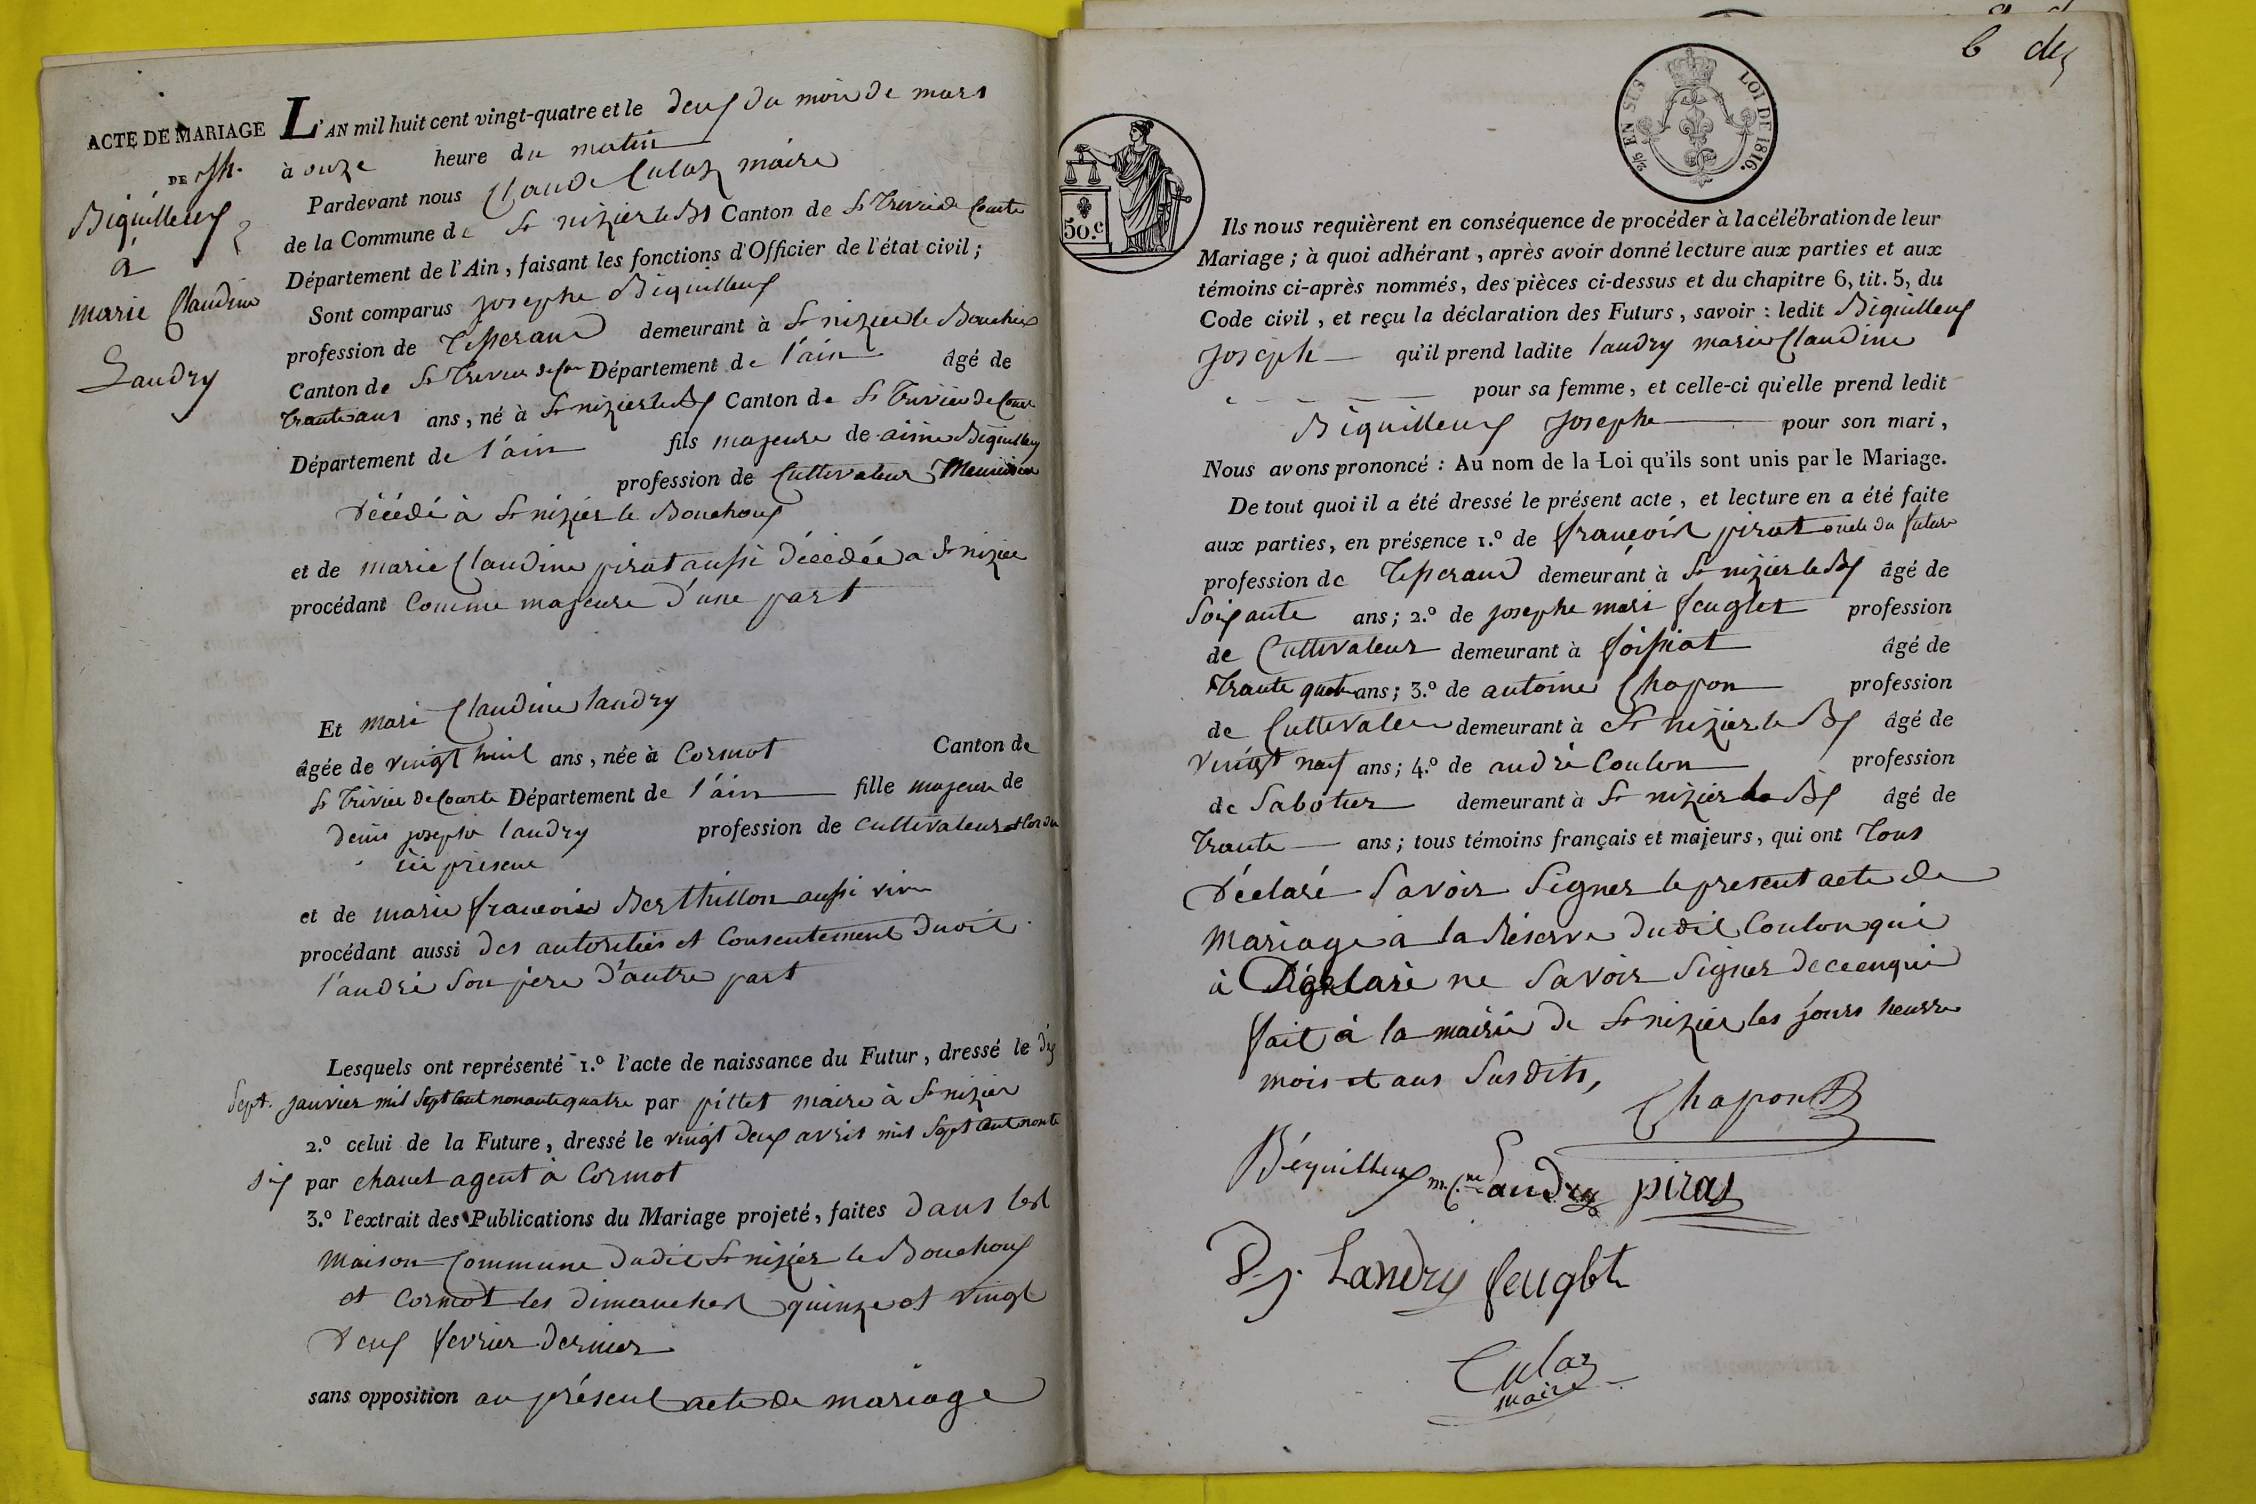 ACTE DE MARIAGE
DE Jh.
Biquilleux
à
marie Claudine
Landry
L'AN mil huit cent vingt-quatre et le deux du mois de mars
à onze heure du matin
Pardevant nous Claude Culaz maire
de la Commune de St nizier le Bx Canton de St Trivié de Courte
Département de l'Ain, faisant les fonctions d'Officier de l'état civil;
Sont comparus Josephe Biquilleux
profession de Tisserand demeurant à St nizier le Bouchoux
Canton de St Trivier de Cour Département de l'ain âgé de
trante ans ans, né à St nizier le Bx Canton de St Trivier de Cour
Département de l'ain fils majeure de aimé Biquilleux
profession de Cultivateur
décédé à St nizier le Bouchoux
et de marie Claudine pirat aussi décédée a St nizier
procédant Comme majeure d'une part
Et mari Claudine landry
âgée de vingt huit ans, née à Cormot Canton de
St Trivier de Courte Département de l'ain fille majeure de
denis josephe landry profession de cultivateur
ici présent
et de marie francoise Berthillon aussi vive
procédant aussi des autorités et Consentement dudit
l'andri Son père d'autre part
Lesquels ont représenté 1.º l'acte de naissance du Futur, dressé le dix
Sept. janvier mil Sept Cent nonante quatre par pittet maire à St nizier
2.º celui de la Future, dressé le vingt deux avril mil Sept Cent nonte
six par chanel agent à Cormot
3.º l'extrait des Publications du Mariage projeté, faites dans les
maison Commune dudit St nizier le Bouchoux
et Cormot les dimanches quinze et vingt
deux fevrier dernier
sans opposition au présent acte de mariage
6 de
2/5 EN SUS
LOI DE 1816.
50.c
Ils nous requièrent en conséquence de procéder à la célébration de leur
Mariage; à quoi adhérant, après avoir donné lecture aux parties et aux
témoins ci-après nommés, des pièces ci-dessus et du chapitre 6, tit. 5, du
Code civil, et reçu la déclaration des Futurs, savoir: ledit Biquilleux
Joseph qu'il prend ladite landry marie Claudine
pour sa femme, et celle-ci qu'elle prend ledit
Biquilleux Josephe pour son mari,
Nous avons prononcé: Au nom de la Loi qu'ils sont unis par le Mariage.
De tout quoi il a été dressé le présent acte, et lecture en a été faite
aux parties, en présence 1.º de françois pirat oncle du futur
profession de Tisserand demeurant à St nizier le Bx âgé de
Soixante ans; 2.º de josephe mari feuglet profession
de Cultivateur demeurant à foissiat âgé de
Trante quatre ans; 3.º de antoine Chapon profession
de Cultivateur demeurant à St nizier le Bx âgé de
vingt neuf ans; 4.º de andré Coulon profession
de Sabotier demeurant à St nizier le Bx âgé de
Trante ans; tous témoins français et majeurs, qui ont Tous
déclaré Savoir Signer le present acte de
Mariage a la Réserve dudit Coulon qui
à Déclaré ne Savoir Signer de ce enquis
fait à la mairie de St nizier les jours heurre
mois et ans Susdits,
Chapon
Béquilleux m. C.ne Landry piras
D. j. Landry feuglet
Culaz
maire